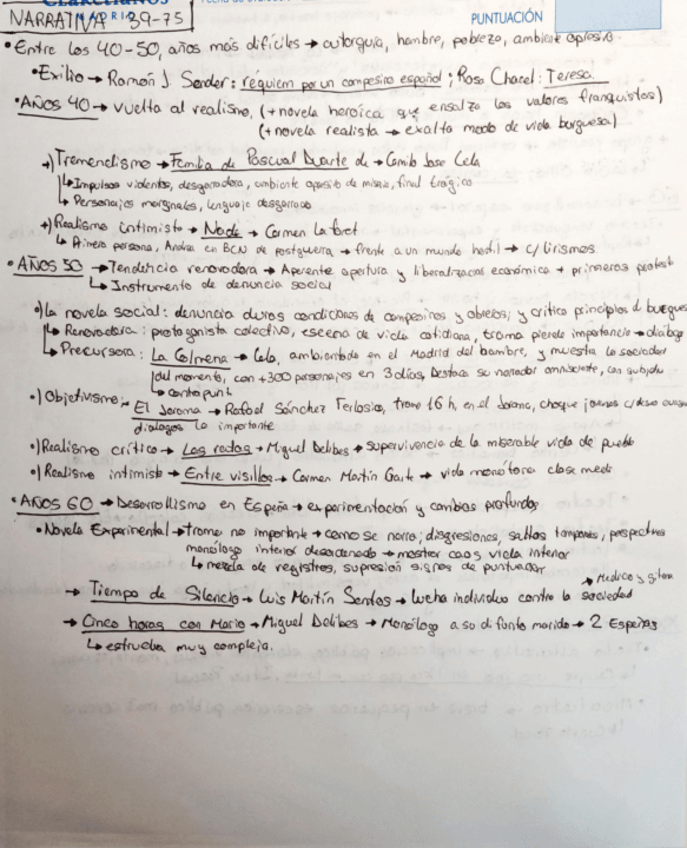 Claretianos
MADRID
NARRATIVA 39-75
PUNTUACIÓN
• Entre los 40-50, años más difíciles → autarquía, hambre, pobreza, ambiente opresivo
• Exilio → Ramón J. Sender: réquiem por un campesino español; Rosa Chacel: Teresa.
• AÑOS 40 → vuelta al realismo, (+novela heroica que ensalza los valores franquistas)
(+novela realista → exalta modo de vida burguesa)
→) Tremendismo → Familia de Pascual Duarte de → Camilo Jose Cela
↳ Impulsos violentos, desgarradora, ambiente opresivo de miseria, final trágico
↳ Personajes marginales, lenguaje desgarrado
→) Realismo intimista → Nada → Carmen Laforet
↳ Primera persona, Andrea en BCN de postguerra → frente a un mundo hostil → c/ lirismos
• AÑOS 50 → Tendencia renovadora → Aparente apertura y liberalización económica + primeras protest
↳ Instrumento de denuncia social
•) La novela social: denuncia duras condiciones de campesinos y obreros; y critica principios d burgues
↳ Renovadora: protagonista colectivo, escena de vida cotidiana, trama pierde importancia → diálogo
↳ Precursora: La Colmena → Cela, ambientada en el Madrid del hambre, y muestra la sociedad
del momento, con +300 personajes en 3 días, Destaca su narrador omnisciente, con
↳ contrapunt
•) Objetivismo: El Jarama → Rafael Sánchez Ferlosio, trama 16 h, en el Jarama, choque jóvenes c/
dialogos lo importante
•) Realismo crítico → Las ratas → Miguel Delibes → supervivencia de la miserable vida de pueblo
•) Realismo intimista → Entre visillos → Carmen Martín Gaite → vida monótona clase media
• AÑOS 60 → Desarrollismo en España → experimentación y cambios profundos
• Novela Experimental → trama no importante → como se narra; disgresiones, saltos temporales, perspectivas
monólogo interior desordenado → mostrar caos vida interior
↳ mezcla de registros, supresión signos de puntuación
→ Médico y gitana
→ Tiempo de Silencio → Luis Martín Santos → lucha individuo contra la sociedad
→ Cinco horas con Mario → Miguel Delibes → Monólogo a su difunto marido → 2 Españas
↳ estructura muy compleja.